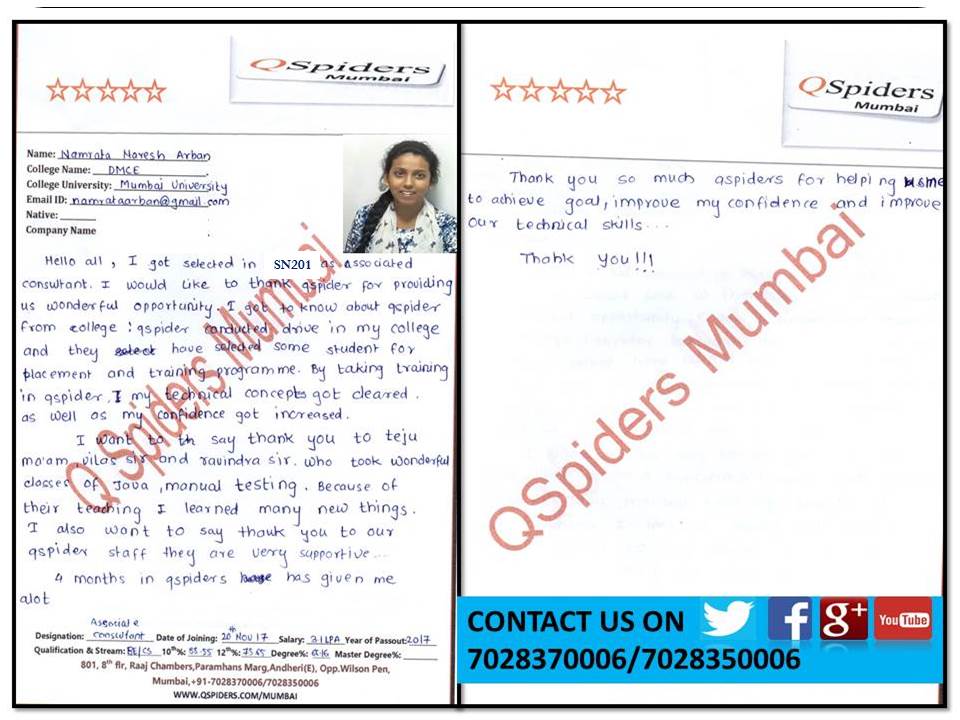 QSpiders
Mumbai
Name: Namrata Moresh Arban
College Name: DMCE
College University: Mumbai University
Email ID: namrataarban@gmail.com
Native:
Company Name
Hello all, I got selected in SN201 as associated
consultant. I would like to thank qspider for providing
us wonderful opportunity. I got to know about qspider
from college : qspider conducted drive in my college
and they select have selected some student for
placement and training programme. By taking training
in qspider, I my technical concepts got cleared.
as well as my confidence got increased.
I want to th say thank you to teju
ma'am, vilas sir and ravindra sir. who took wonderful
classes of Java, manual testing. Because of
their teaching I learned many new things.
I also want to say thank you to our
qspider staff they are very supportive...
4 months in qspiders has given me
alot
Q Spiders Mumbai
Associate
Designation: consultant Date of Joining: 20th Nov 17 Salary: Year of Passout: 2017
Qualification & Stream: BE/CS 10th%: 12th%: Degree%: Master Degree%:
801, 8th flr, Raaj Chambers,Paramhans Marg,Andheri(E), Opp.Wilson Pen,
Mumbai,+91-7028370006/7028350006
WWW.QSPIDERS.COM/MUMBAI
QSpiders
Mumbai
Thank you so much qspiders for helping me
to achieve goal, improve my confidence and improve
our technical skills...
Thank you!!!
QSpiders Mumbai
CONTACT US ON
g+
You Tube
7028370006/7028350006